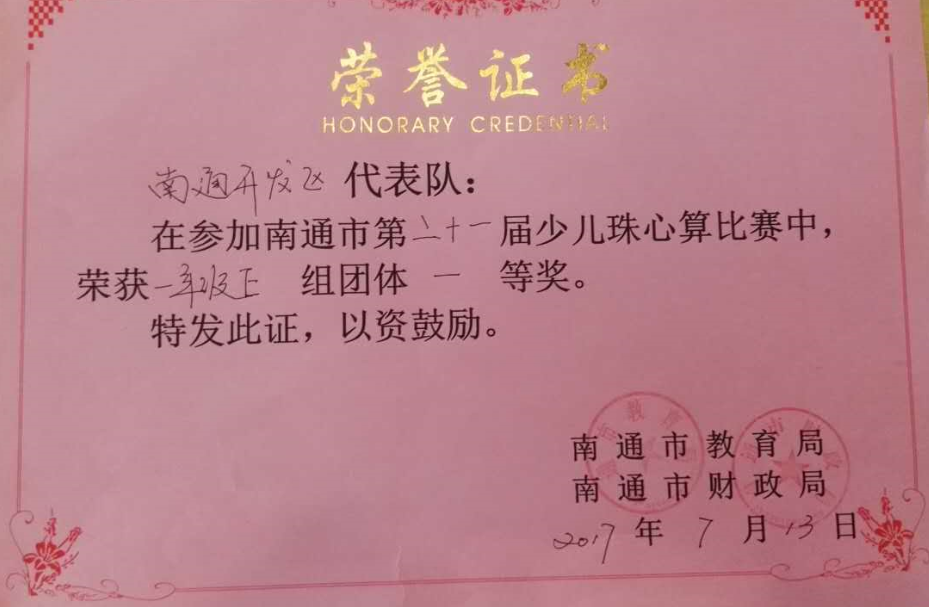 荣誉证书
HONORARY CREDENTIAL
南通开发区 代表队：
在参加南通市第二十一届少儿珠心算比赛中，
荣获一年级上 组团体 一 等奖。
特发此证，以资鼓励。
南通市教育局
南通市财政局
2017年7月13日